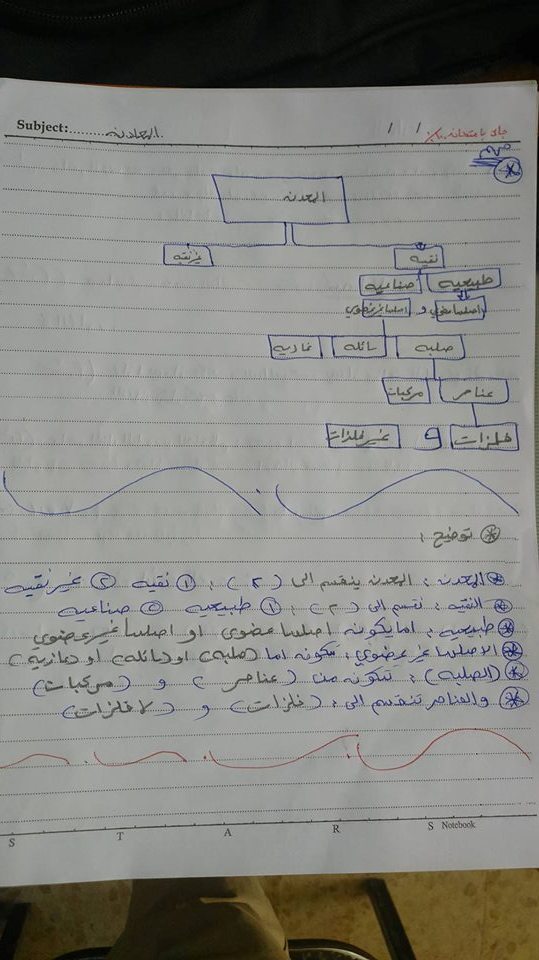 Subject: المعادنه / / جاي بامتحانه
مهم
المعدنه
نقيه غيرنقيه
طبيعيه صناعيه
اصلها عضوي و اصلها غيرعضوي
صلبه سائله غازيه
عناصر مركبات
فلزات و غير فلزات
توضيح :
المعدنه : المعدن ينقسم الى (٢) : ① نقيه ② غير نقيه
النقيه : تقسم الى (٢) : ① طبيعيه ② صناعيه
طبيعيه : اما يكونه اصلها عضوي او اصلها غير عضوي
الاصلها غير عضوي : يكونه اما (صلبه) او (سائله) او (غازيه)
(الصلبة) : تتكونه من (عناصر) و (مركبات)
والعناصر تنقسم الى : (فلزات) و (لا فلزات)
S T A R S Notebook